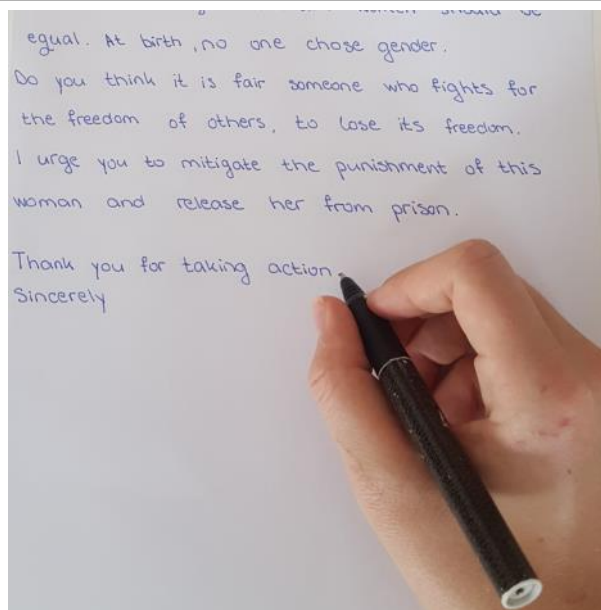 should be
equal. At birth, no one chose gender.
Do you think it is fair someone who fights for
the freedom of others, to lose its freedom.
I urge you to mitigate the punishment of this
woman and release her from prison.
Thank you for taking action.
Sincerely